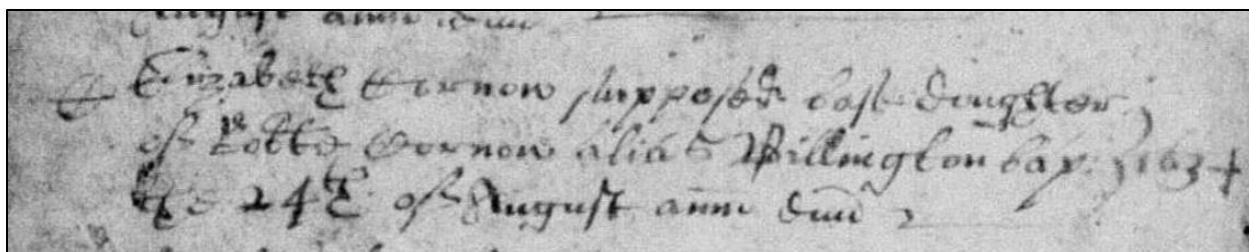 August anno dm̄
Elizabeth Cornow supposed base doughter
of Cornow alias Willington bap: 1634
the 24th of August anno dm̄